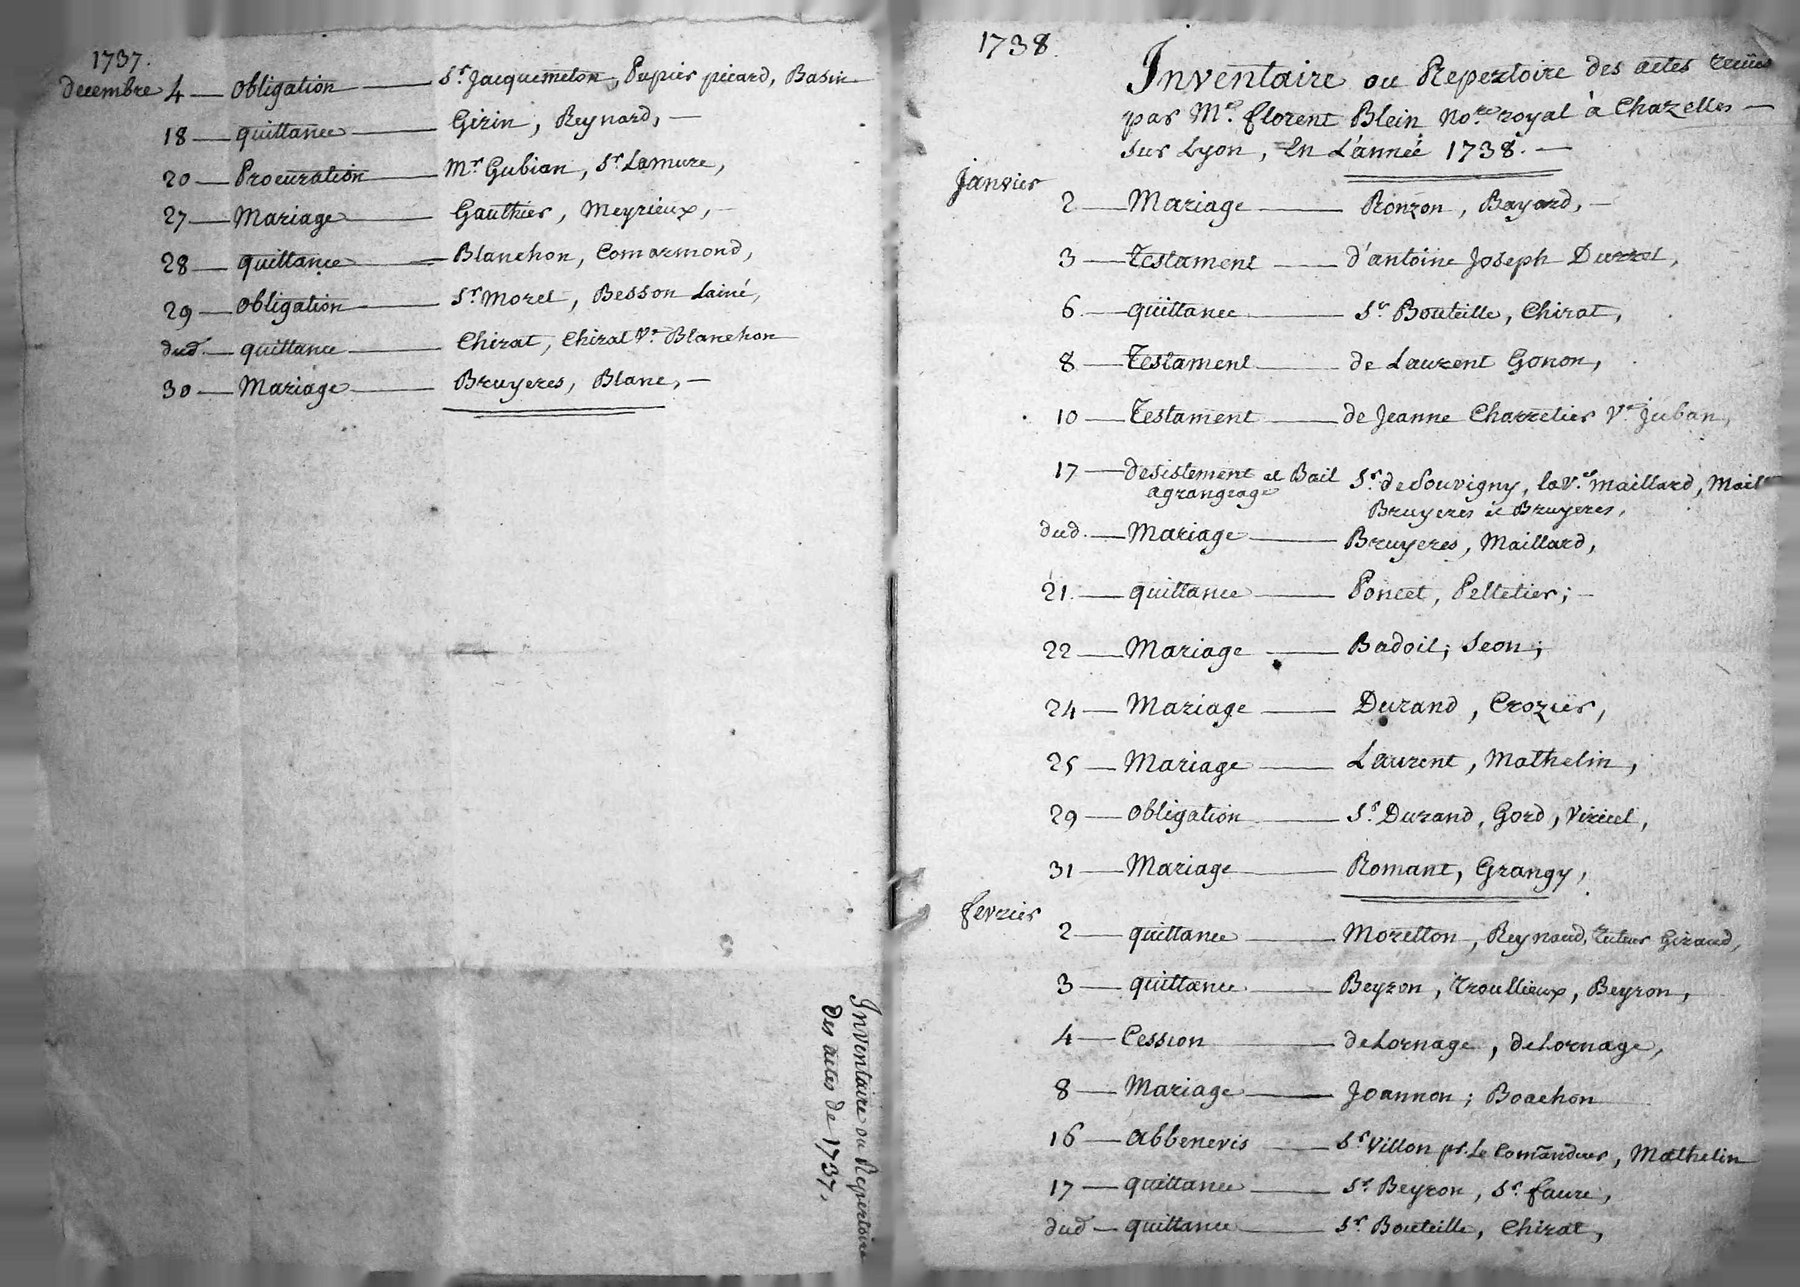 1737.
decembre 4 — obligation — Sr. Jacquemeton, Pupier picard, Basin
18 — quittance — Girin, Reynard, —
20 — Procuration — Mr. Gubian, Sr. Lamure,
27 — Mariage — Gauthier, Meyrieux, —
28 — quittance — Blanchon, Comarmond,
29 — obligation — Sr. Morel, Besson Lainé,
dud. — quittance — Chirat, Chirat Ve. Blanchon
30 — Mariage — Bruyeres, Blanc, —
Inventaire ou Repertoire
des actes de 1737.
1738.
Inventaire ou Repertoire des actes reçûs
par Me. florent Blein No.re royal à Chazelles —
sur Lyon, En L'année 1738. —
Janvier
2 — Mariage — Ronzon, Bayard, —
3 — Testament — d'antoine Joseph
6 — quittance — Sr. Bouteille, Chirat,
8 — Testament — de Laurent Gonon,
10 — Testament — de Jeanne Charretier Ve. Juban,
17 — desistement et Bail Sr. de Souvigny, la Ve. Maillard,
agrangeage Bruyeres et Bruyeres,
dud. — Mariage — Bruyeres, Maillard,
21. — quittance — Poncet, Pelletier; —
22 — Mariage — Badoil; Seon;
24 — Mariage — Durand, Crozier,
25 — Mariage — Laurent, Mathelin,
29 — obligation — Sr. Durand, Gord, Viricel,
31 — Mariage — Romant, Grangy,
fevrier
2 — quittance — Moretton, Reynaud, tuteur Giraud,
3 — quittance — Beyron, Troullieux, Beyron,
4 — Cession — deLornage, deLornage,
8 — Mariage — Joannon; Boachon
16 — abbenevis — Sr. Villon pr. Le Comandeur, Mathelin
17 — quittance — Sr. Beyron, Sr. faure,
dud — quittance — Sr. Bouteille, Chirat,